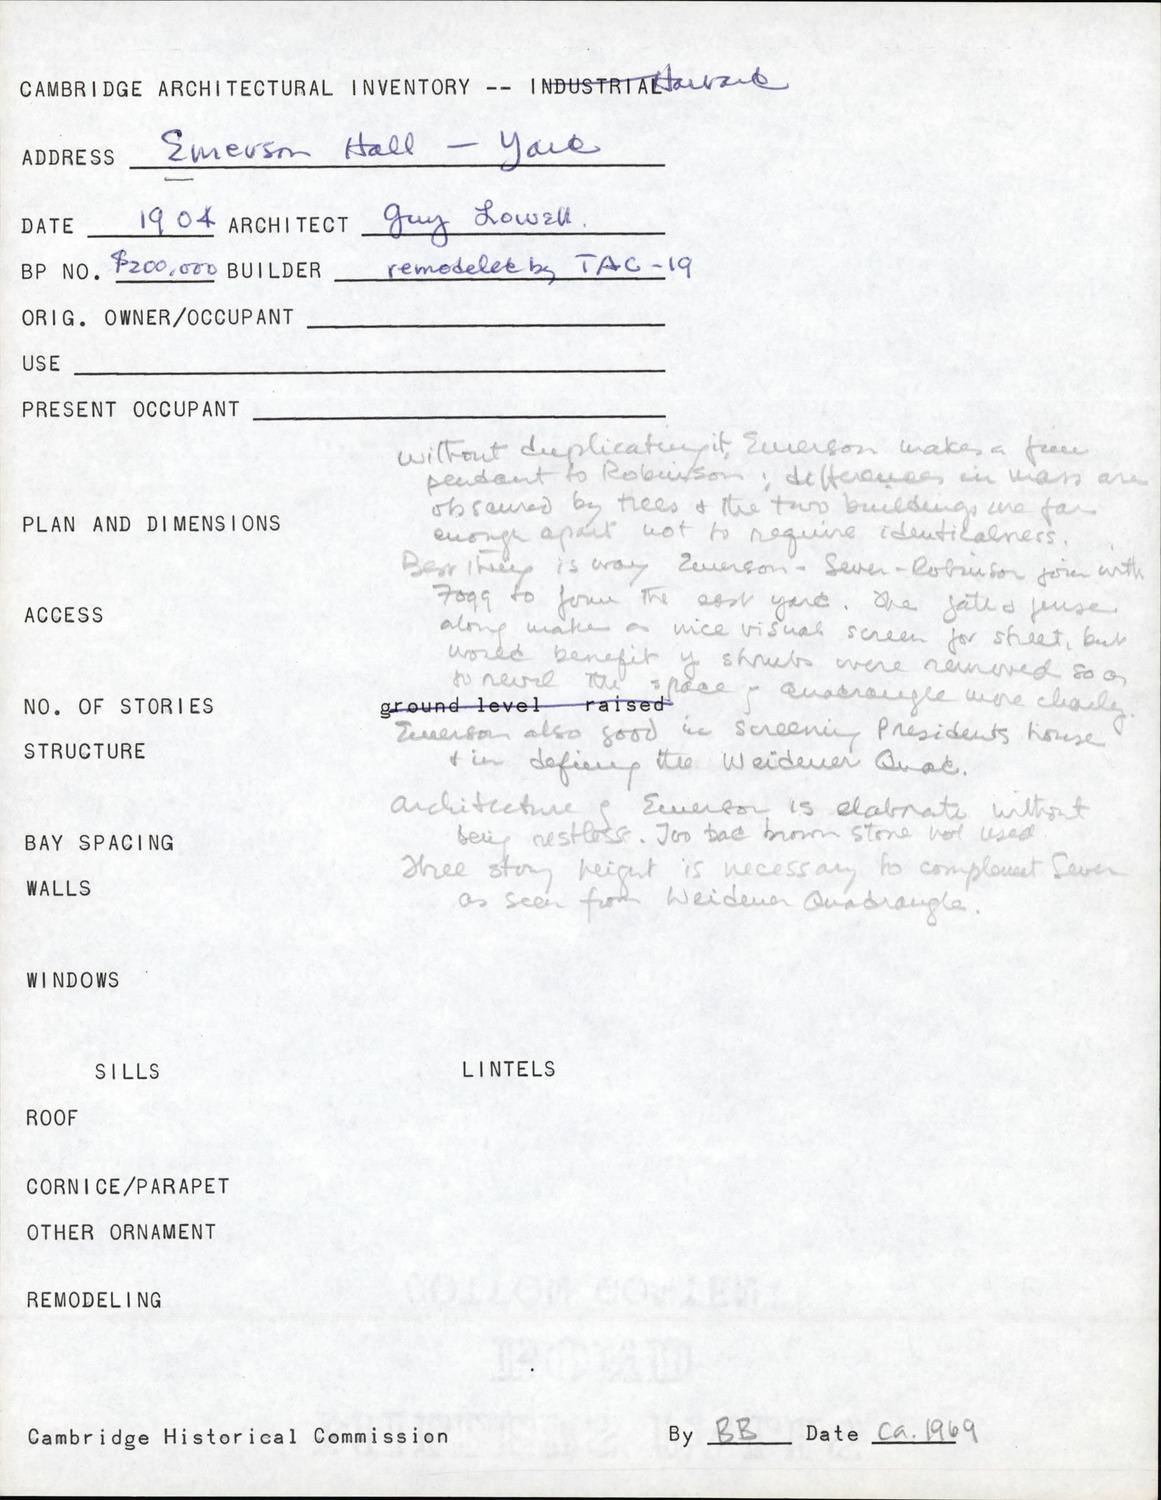 CAMBRIDGE ARCHITECTURAL INVENTORY -- INDUSTRIAL Harvard
ADDRESS Emerson Hall - Yard
DATE 1904 ARCHITECT Guy Lowell.
BP NO. $200,000 BUILDER remodeled by TAC - 19
ORIG. OWNER/OCCUPANT
USE
PRESENT OCCUPANT
without duplicating it, Emerson makes a fine
pendant to Robinson; differences in mass are
obscured by trees & the two buildings are far
PLAN AND DIMENSIONS
enough apart not to require identicalness.
Best thing is way Emerson - Sever - Robinson join with
Fogg to form the east yard. The gate & fense
ACCESS
along make a nice visual screen for street, but
would benefit if shrubs were removed so as
to reveal the space of quadrangle more clearly.
NO. OF STORIES ground level raised
Emerson also good in screening Presidents house
STRUCTURE
& in defining the Weidener Quad.
architecture of Emerson is elaborate without
being restless. Too bad brown stone not used
BAY SPACING
three story height is necessary to complement Sever
WALLS
as seen from Weidener Quadrangle.
WINDOWS
SILLS LINTELS
ROOF
CORNICE/PARAPET
OTHER ORNAMENT
REMODELING
Cambridge Historical Commission By BB Date ca. 1969